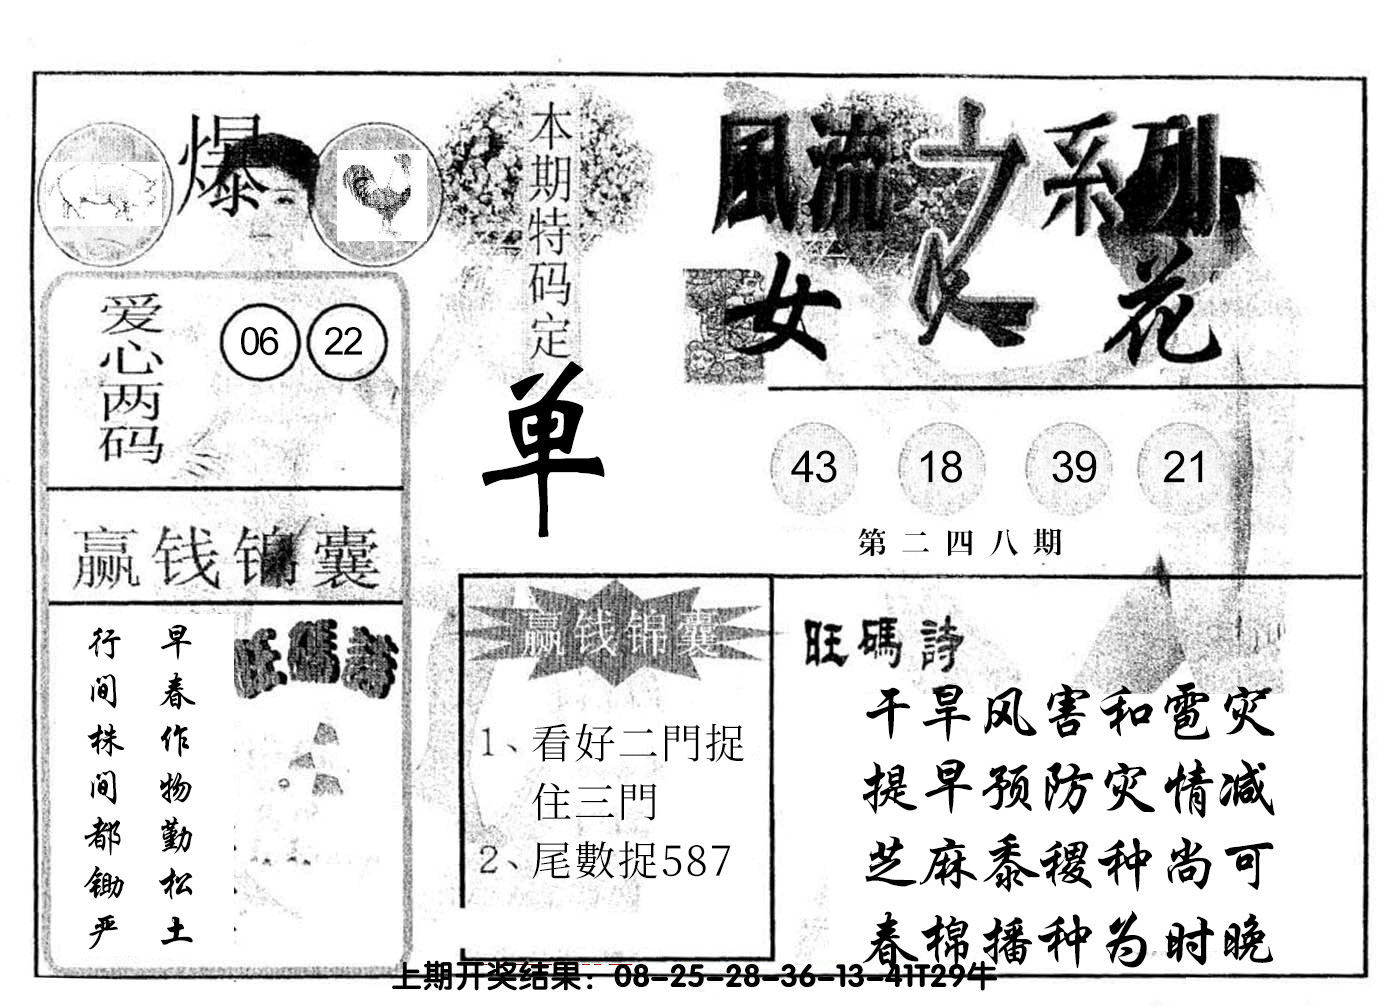 爆
本期特码定
单
風流之系列
女人花
爱心两码
06 22
43 18 39 21
第二四八期
赢钱锦囊
早春作物勤松土
行间株间都锄严
旺碼詩
赢钱锦囊
1、看好二門捉
住三門
2、尾數捉587
旺碼詩
干旱风害和雹灾
提早预防灾情减
芝麻黍稷种尚可
春棉播种为时晚
上期开奖结果：08-25-28-36-13-41T29牛